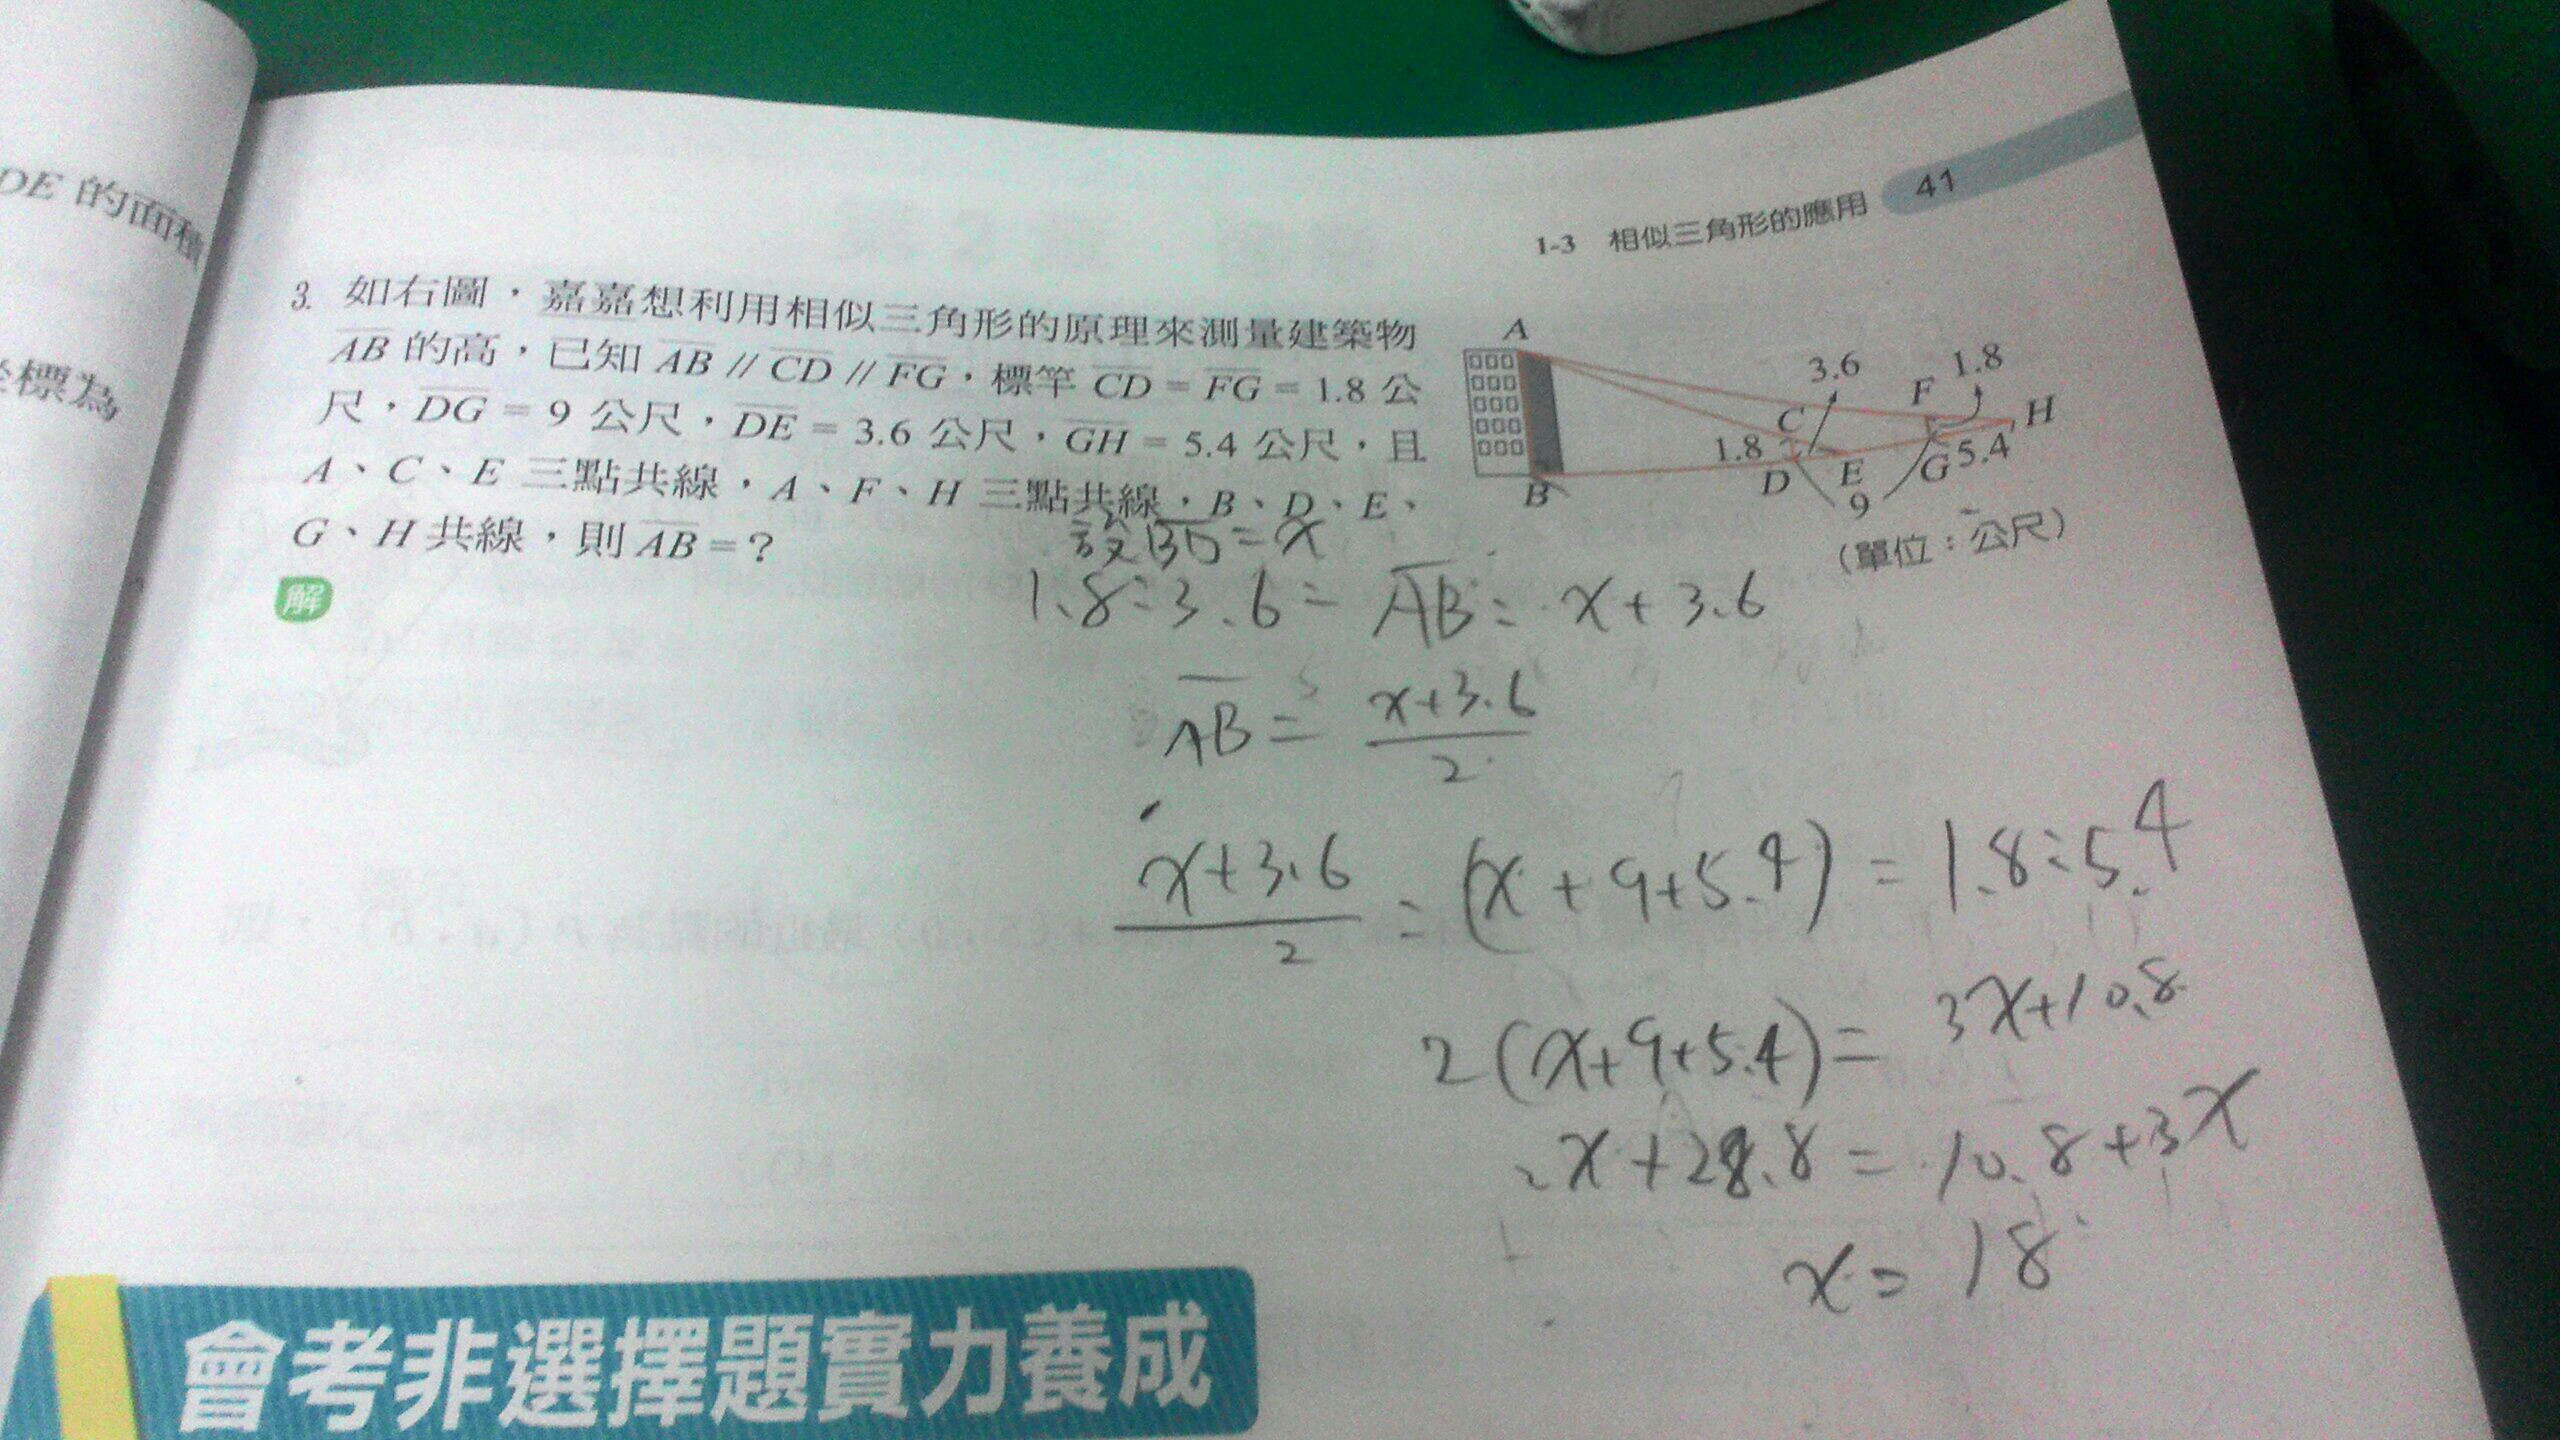 DE 的面積
標為
1-3 相似三角形的應用 41
3. 如右圖,嘉嘉想利用相似三角形的原理來測量建築物
AB 的高,已知 AB // CD // FG,標竿 CD = FG = 1.8 公
尺,DG = 9 公尺,DE = 3.6 公尺,GH = 5.4 公尺,且
A、C、E 三點共線,A、F、H 三點共線,B、D、E、
G、H 共線,則 AB = ?
解
A
B
1.8
C
D
3.6
E
9
F
G
1.8
5.4
H
(單位:公尺)
設 BD = x
1.8:3.6 = AB : x + 3.6
AB = x+3.6/2
x+3.6/2 : (x+9+5.4) = 1.8:5.4
2(x+9+5.4) = 3x+10.8
2x+28.8 = 10.8+3x
x = 18
會考非選擇題實力養成